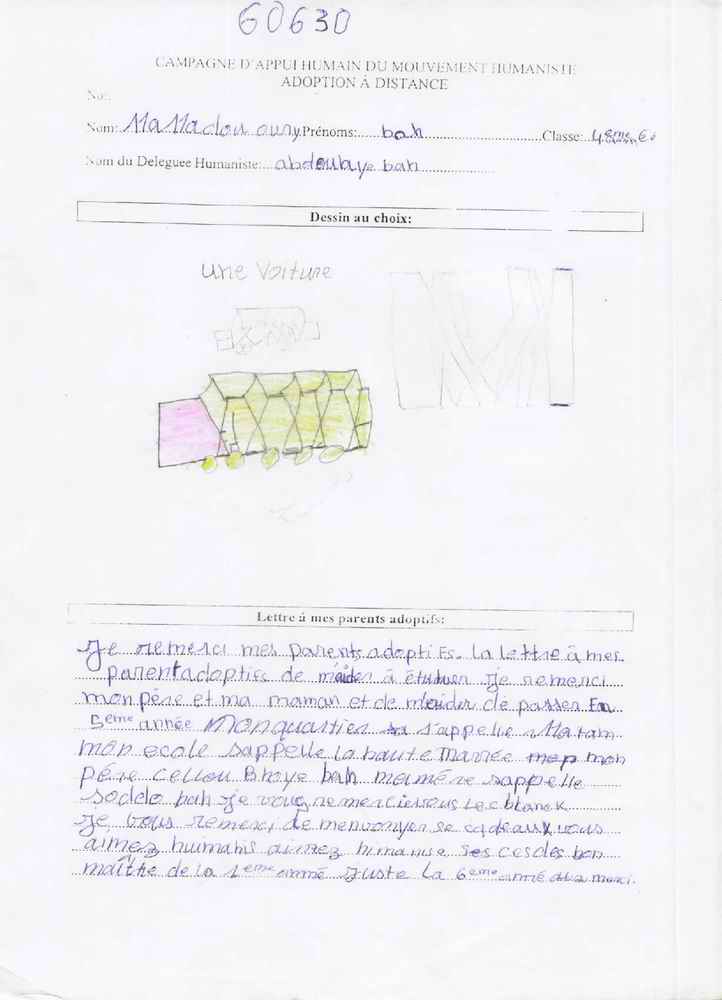 60630
CAMPAGNE D'APPUI HUMAIN DU MOUVEMENT HUMANISTE
ADOPTION À DISTANCE
No:
Nom: MaMadou oury Prénoms: bah Classe: 4eme
Nom du Deleguee Humaniste: abdoulaye bah
Dessin au choix:
une Voiture
Lettre à mes parents adoptifs:
Je remerci mes parents adoptifs. la lettre à mes
parent adoptifs de m'aider à étudier Je remerci
mon père et ma maman et de m'aider de passer En
5eme année Mon quartier s'appelle Matam
mon ecole sappelle la haute Marrée mon
père cellou Bhoye bah ma mére sappelle
soddo bah je vous remercie vous
Je vous remerci de menvoyer se cadeaux vous
aimez humanis aimez ces des bon
maîthe de la 1eme année Juste la 6eme année merci.